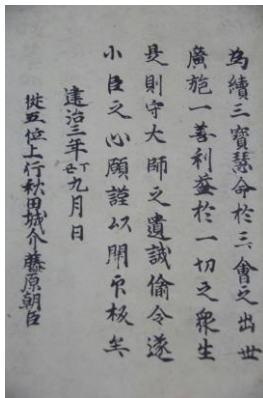 為續三寶慧命於三會之出世
廣施一善利益於一切之衆生
是則守大師之遺誡偷令遂
小臣之心願謹以開印板矣
建治三年丁丑九月日
從五位上行秋田城介藤原朝臣